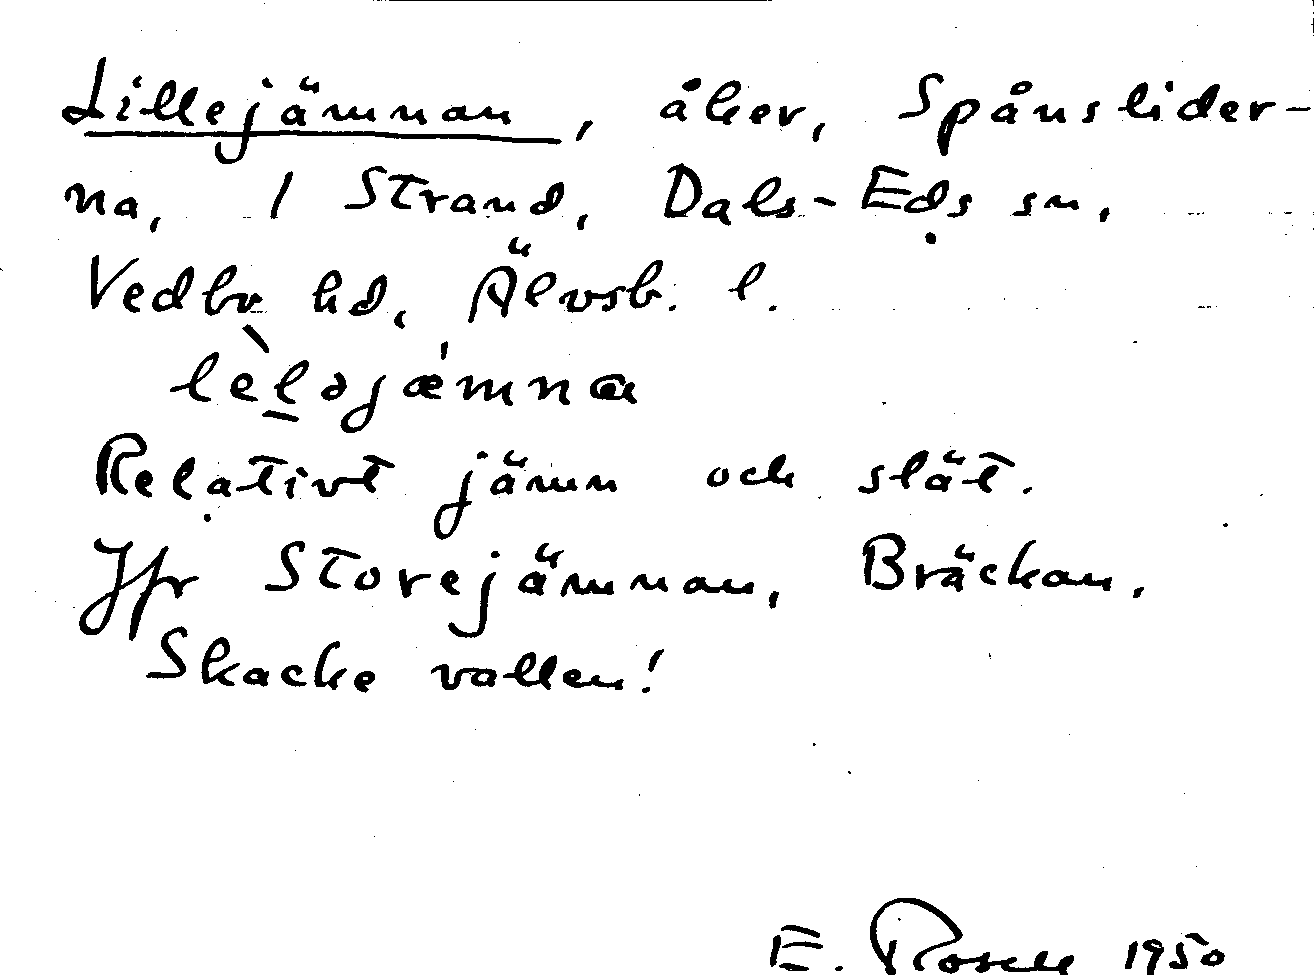 Lillejämnan, åker, Spånslider-
na, 1 Strand, Dals-Eds sn,
Vedbo hd, Älvsb. l.
lèləjæ̀mna
Relativt jämn och slät.
Jfr Storejämnan, Bräckan.
Skacke vallen!
E. Rosell 1950